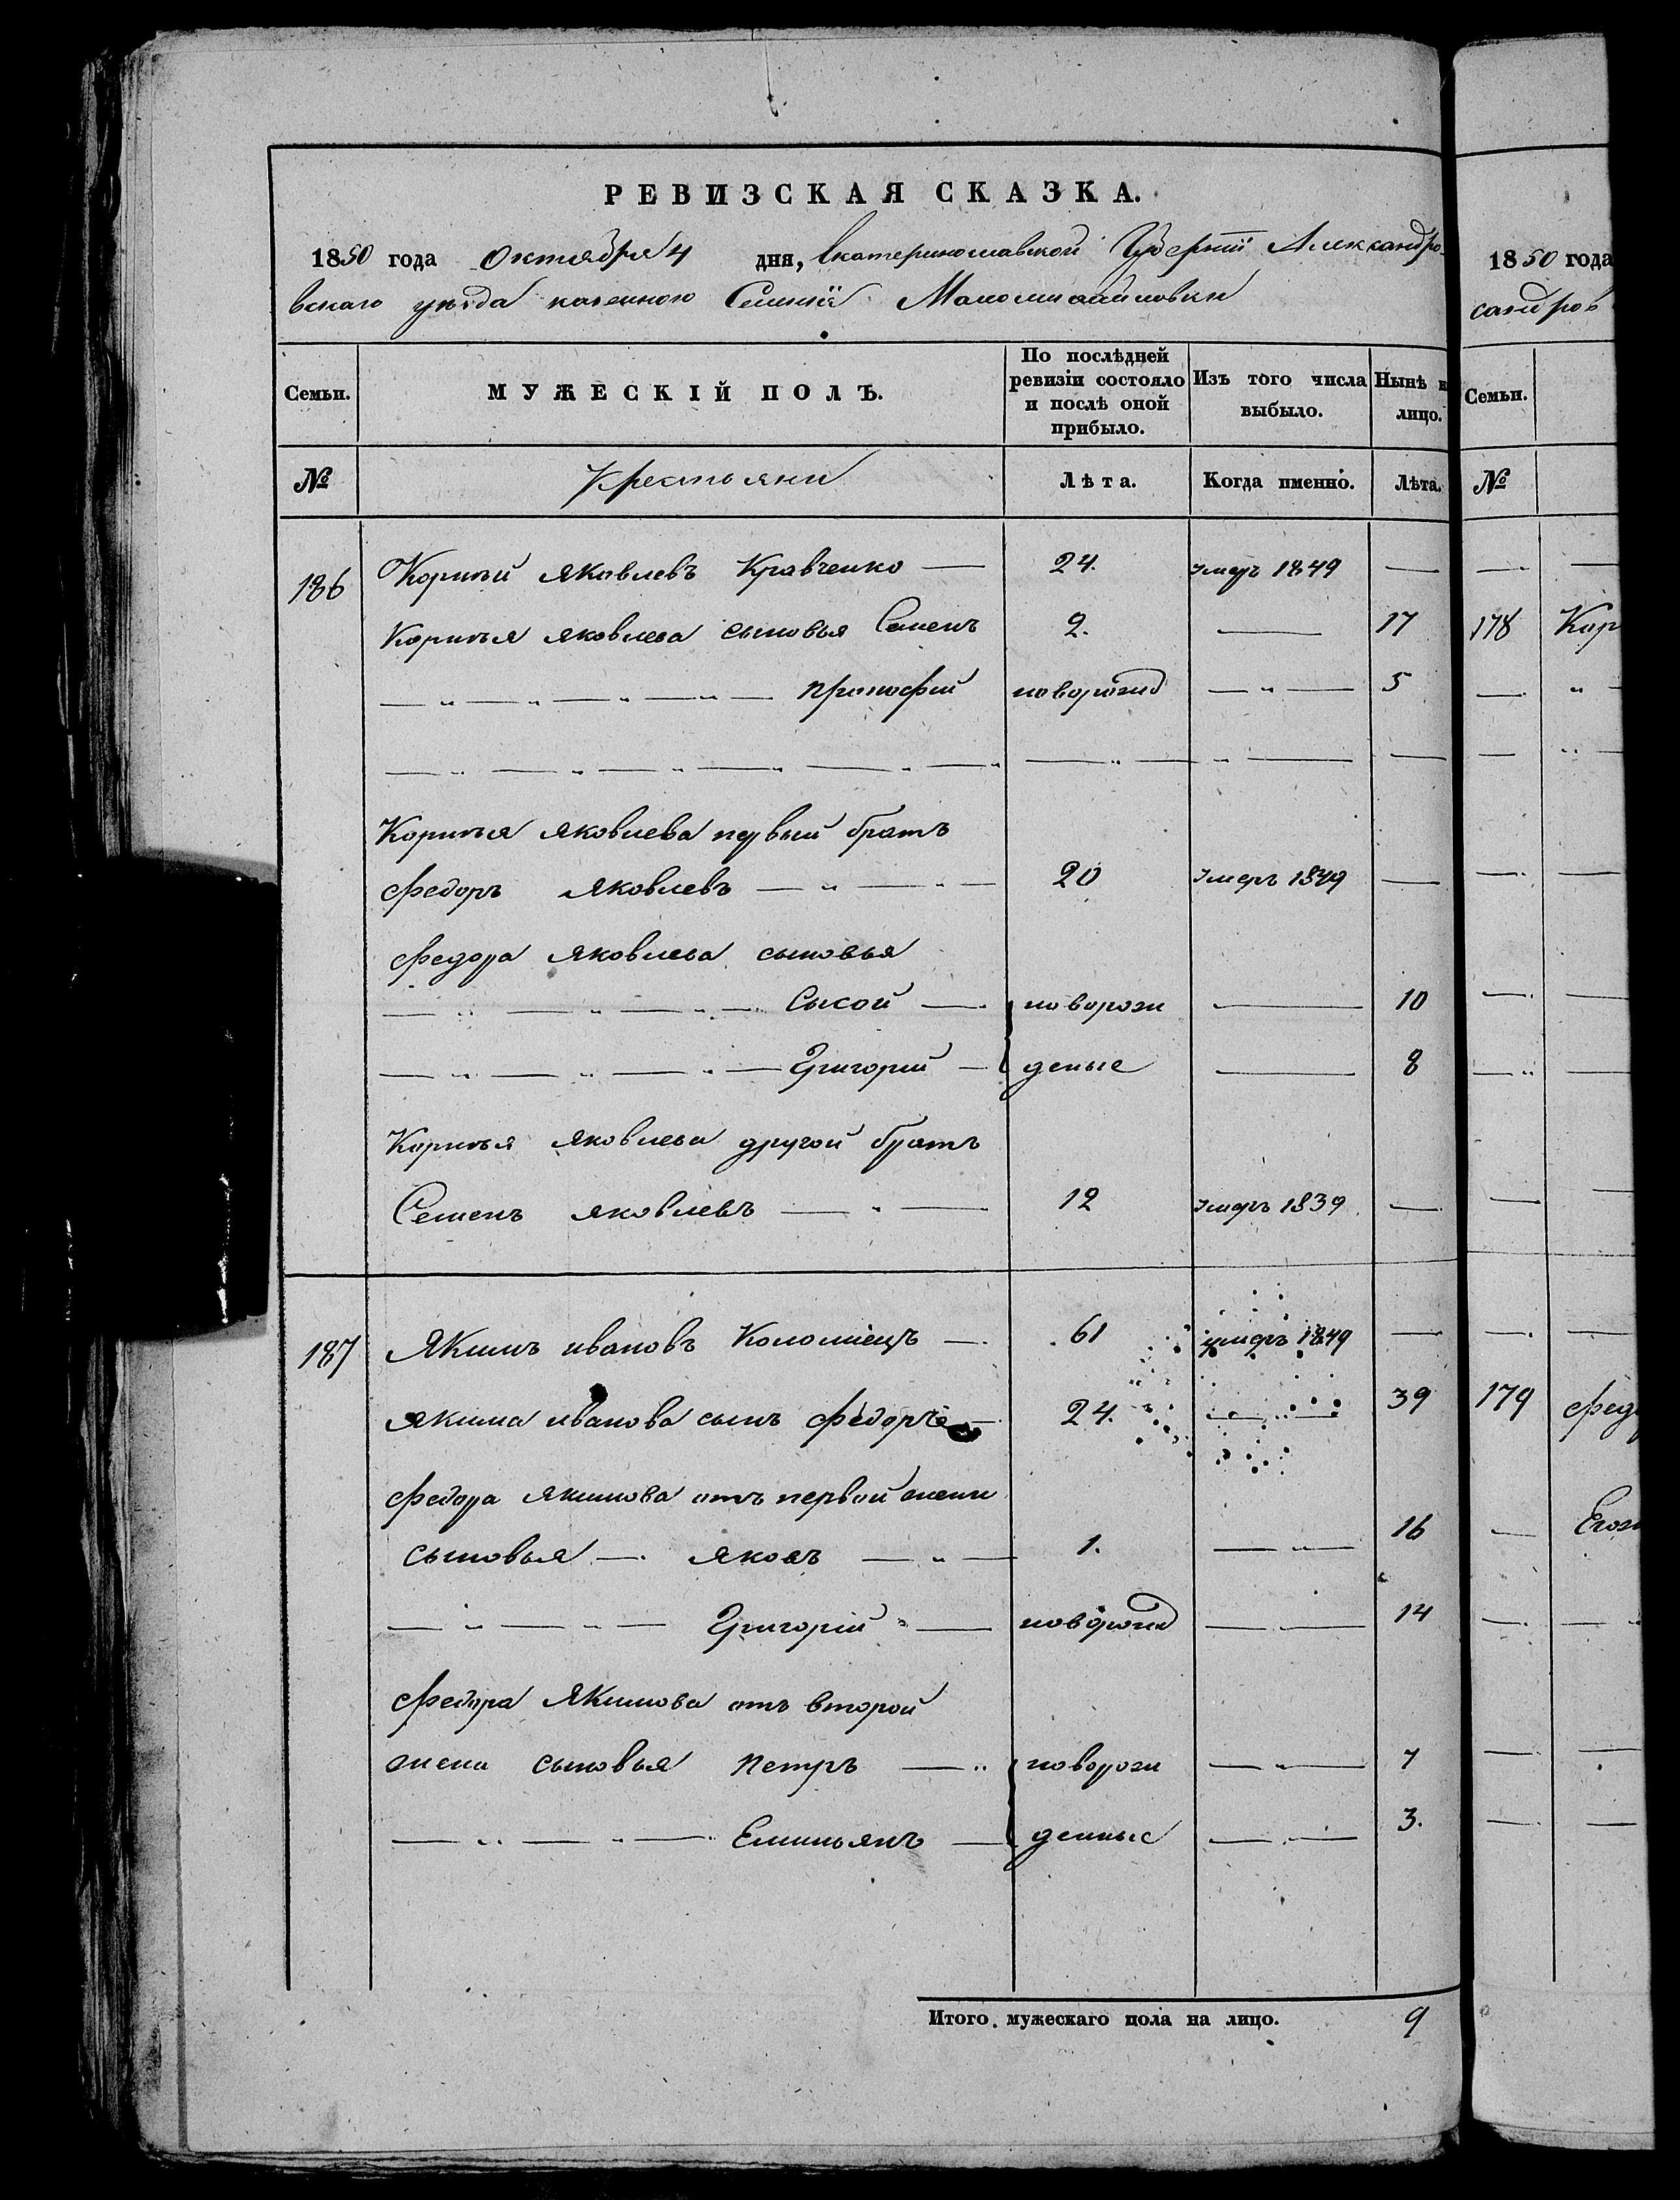 РЕВИЗСКАЯ СКАЗКА.
1850 года Октября 4 дня, Екатеринославской Губернiи Александро-
вскаго уезда казенного Селенiя Маломихайловки
Семьи. МУЖЕСКІЙ ПОЛЪ. По послѣдней ревизіи состояло и послѣ оной прибыло. Изъ того числа выбыло. Нынѣ н лицо.
№ Крестьяни Лѣта. Когда именно. Лѣта.
186 Корнѣй Яковлевъ Кравченко — 24. умеръ 1849 —
Корнѣя Яковлева сыновья Семенъ 2. — 17
— „ — „ — „ — „ — Прокофій новорожд — „ — 5
— „ — „ — „ — „ — „ — „ — „ — „ — —
Корнѣя Яковлева первый братъ
Федоръ Яковлевъ — „ — „ — 20 умеръ 1849 —
Федора Яковлева сыновья
— „ — „ — „ — Сысой — новорож — 10
— „ — „ — „ — Григорій — деные — 8
Корнѣя Яковлева другой братъ
Семенъ Яковлевъ — „ — 12 умеръ 1839 —
187 Якимъ Ивановъ Коломiецъ — 61 умеръ 1849 —
Якима Иванова сынъ Федоръ — 24. — „ — 39
Федора Якимова отъ первой жени
сыновья — Яковъ — „ — 1. — „ — 16
— „ — „ — Григорій „ — новорожд — „ — 14
Федора Якимова отъ второй
жени сыновья Петръ — „ новорож — „ — 7
— „ — „ — Емильянъ — денные — „ — 3.
Итого мужескаго пола на лицо. 9
1850 года
сандров
Семьи.
№
178 Кор
179 Фед
Его